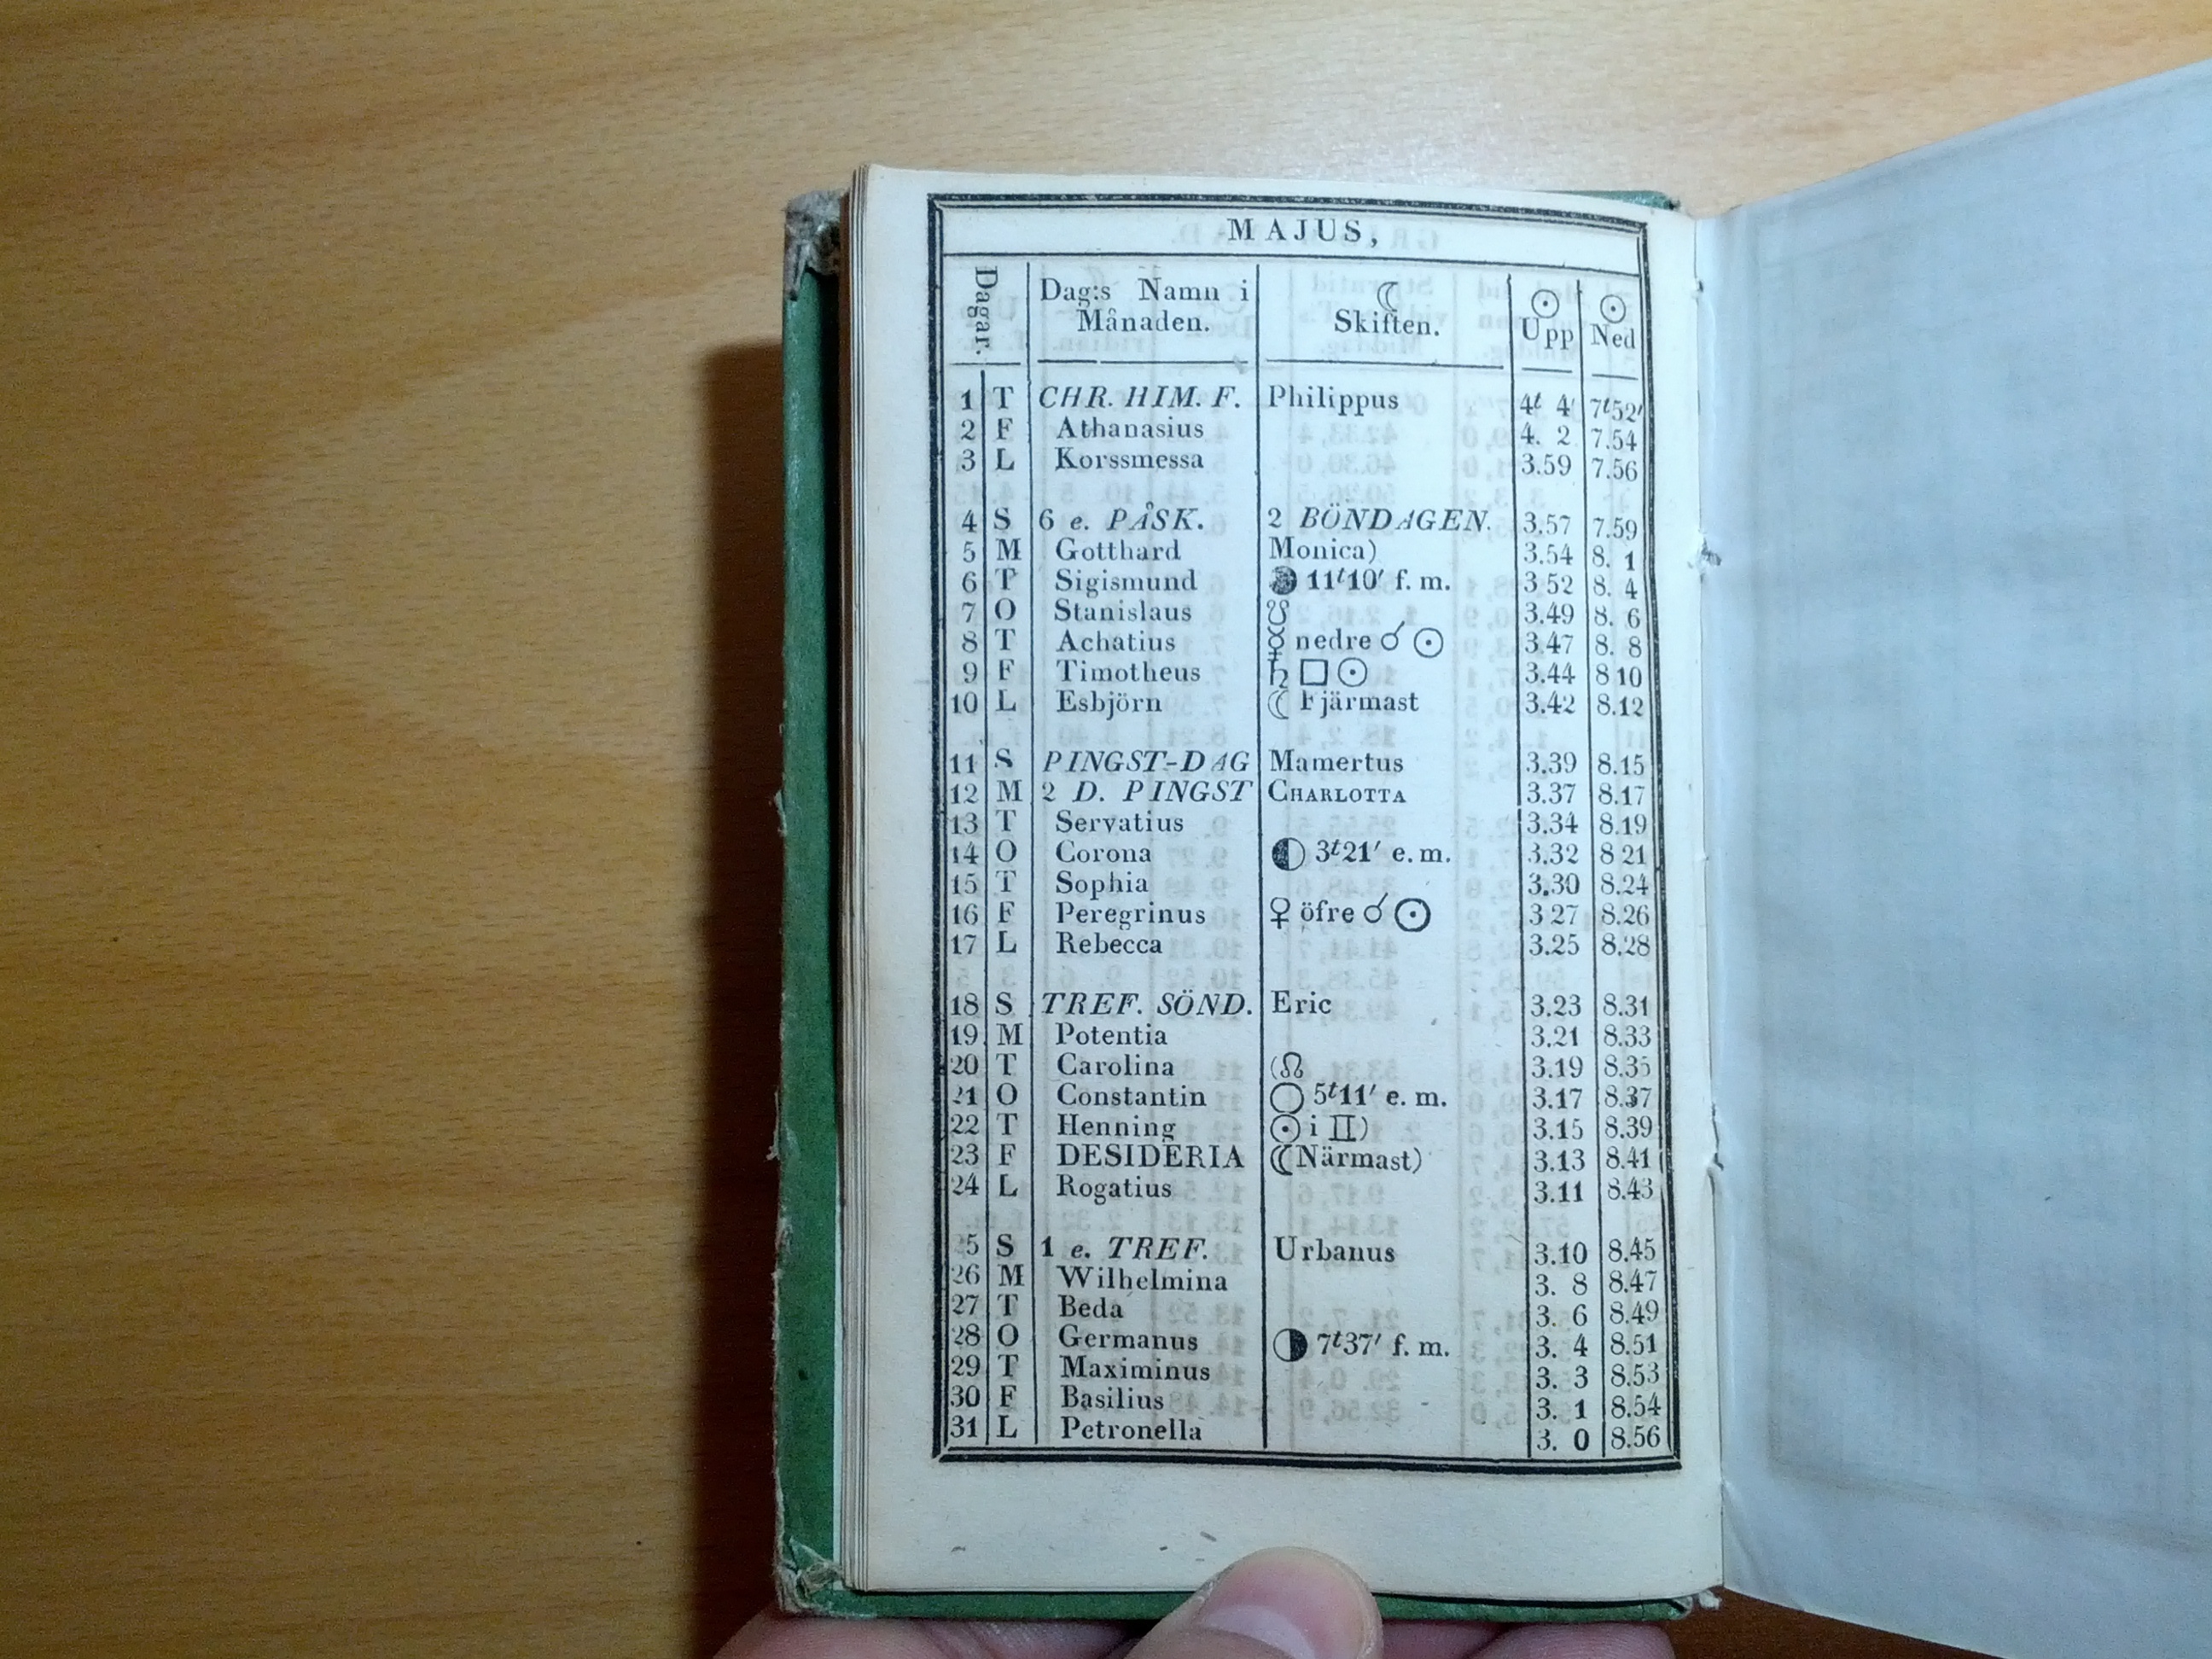 MAJUS,
Dagar. Dag:s Namn i Månaden. ☾ Skiften. ☉ Upp ☉ Ned
1 T CHR. HIM. F. Philippus 4t 4' 7t52'
2 F Athanasius 4. 2 7.54
3 L Korssmessa 3.59 7.56
4 S 6 e. PÅSK. 2 BÖNDAGEN. 3.57 7.59
5 M Gotthard Monica) 3.54 8. 1
6 T Sigismund 11t10' f. m. 3 52 8. 4
7 O Stanislaus ☋ 3.49 8. 6
8 T Achatius ☿ nedre ☌ ☉ 3.47 8. 8
9 F Timotheus ♄ □ ☉ 3.44 8 10
10 L Esbjörn ☾ Fjärmast 3.42 8.12
11 S PINGST-DAG Mamertus 3.39 8.15
12 M 2 D. PINGST CHARLOTTA 3.37 8.17
13 T Servatius 3.34 8.19
14 O Corona ◐ 3t21' e. m. 3.32 8 21
15 T Sophia 3.30 8.24
16 F Peregrinus ♀ öfre ☌ ☉ 3 27 8.26
17 L Rebecca 3.25 8.28
18 S TREF. SÖND. Eric 3.23 8.31
19 M Potentia 3.21 8.33
20 T Carolina (☊ 3.19 8.35
21 O Constantin ○ 5t11' e. m. 3.17 8.37
22 T Henning ☉ i ♊) 3.15 8.39
23 F DESIDERIA (☾Närmast) 3.13 8.41
24 L Rogatius 3.11 8.43
25 S 1 e. TREF. Urbanus 3.10 8.45
26 M Wilhelmina 3. 8 8.47
27 T Beda 3. 6 8.49
28 O Germanus ◑ 7t37' f. m. 3. 4 8.51
29 T Maximinus 3. 3 8.53
30 F Basilius 3. 1 8.54
31 L Petronella 3. 0 8.56